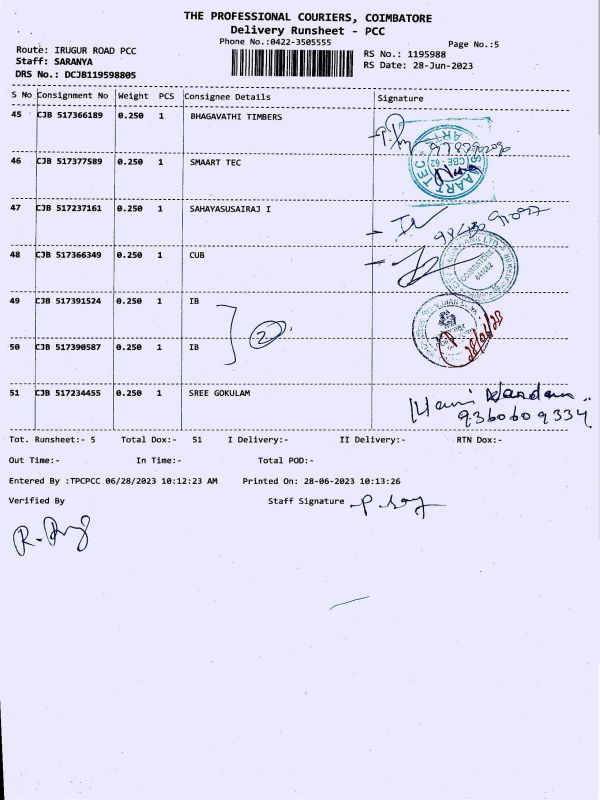 THE PROFESSIONAL COURIERS, COIMBATORE
Delivery Runsheet - PCC
Phone No.:0422-3505555
Page No.:5
Route: IRUGUR ROAD PCC
RS No.: 1195988
Staff: SARANYA
RS Date: 28-Jun-2023
DRS No.: DCJB119598805
S No Consignment No Weight PCS Consignee Details Signature
45 CJB 517366189 0.250 1 BHAGAVATHI TIMBERS
46 CJB 517377589 0.250 1 SMAART TEC
SMAART TEC
CBE - 62
47 CJB 517237161 0.250 1 SAHAYASUSAIRAJ I
48 CJB 517366349 0.250 1 CUB
49 CJB 517391524 0.250 1 IB
2
50 CJB 517390587 0.250 1 IB
51 CJB 517234455 0.250 1 SREE GOKULAM
9360609334
Tot. Runsheet:- 5 Total Dox:- 51 I Delivery:- II Delivery:- RTN Dox:-
Out Time:- In Time:- Total POD:-
Entered By :TPCPCC 06/28/2023 10:12:23 AM Printed On: 28-06-2023 10:13:26
Verified By Staff Signature